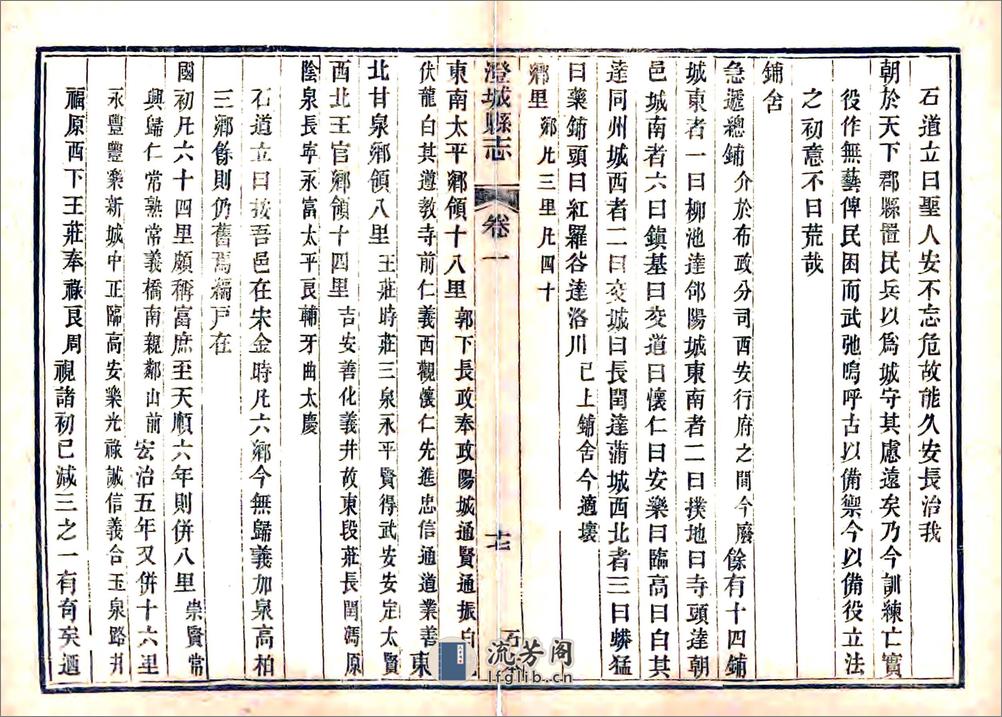 石道立曰聖人安不忘危故能久安長治我
朝於天下郡縣置民兵以為城守其慮遠矣乃今訓練亡實
役作無藝俾民困而武弛嗚呼古以備禦今以備役立法
之初意不日荒哉
鋪舍
急遞總鋪介於布政分司西安行府之間今廢餘有十四鋪
城東者一曰柳池達郃陽城東南者二曰撲地曰寺頭達朝
邑城南者六曰鎮基曰交道曰懷仁曰安樂曰臨高曰白其
達同州城西者二曰交城曰長閏達蒲城西北者三曰蟒猛
曰藥鋪頭曰紅羅谷達洛川已上鋪舍今適壞
鄉里鄉凡三里凡四十
澄城縣志 卷一 十七
東南太平鄉領十八里郭下長政奉政陽城通賢通振白
伏龍白其遵教寺前仁義西觀懷仁先進忠信通道業善東
北甘泉鄉領八里王莊時莊三泉永平賢得武安安定太賢
西北王官鄉領十四里吉安善化義井故東段莊長閏馮原
陰泉長寧永富太平良輔牙曲太慶
石道立曰按吾邑在宋金時凡六鄉今無歸義加泉高柏
三鄉餘則仍舊焉編戶在
國初凡六十四里頗稱富庶至天順六年則併八里崇賢常
興歸仁常熟常義橋南親鄰山前宏治五年又併十六里
永豐豐樂新城中正臨高安樂光祿誠信義合玉泉路井
福原西下王莊奉祿良周視諸初已減三之一有奇矣迺
流芳阁
lfglib.cn